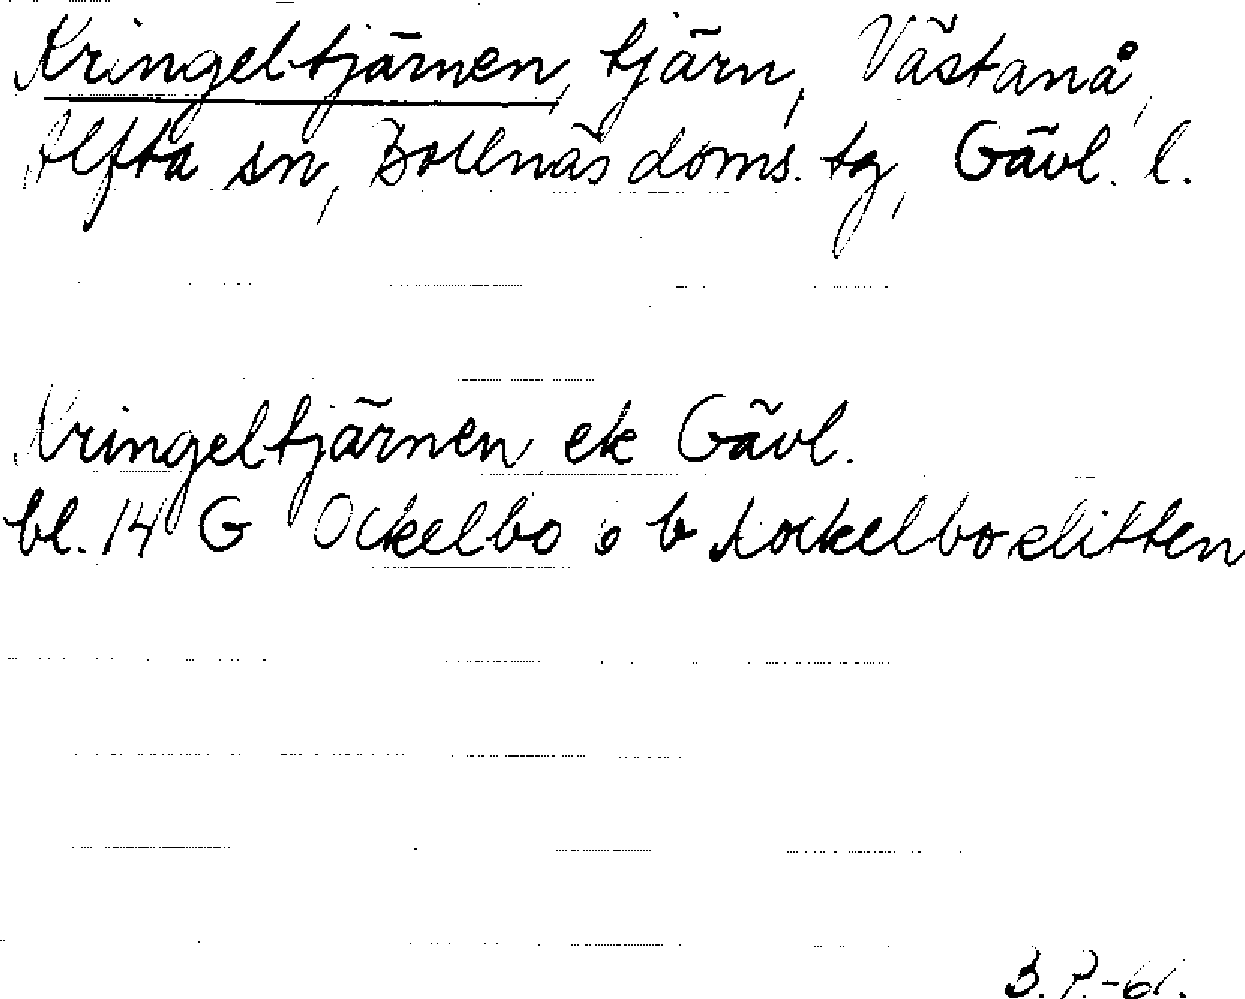 Kringeltjärnen, tjärn, Västanå,
Alfta sn, Bollnäs doms. tg, Gävl. l.
Kringeltjärnen ek Gävl.
bl. 14 G Ockelbo o b Kockelboslitten
B. P.-61.